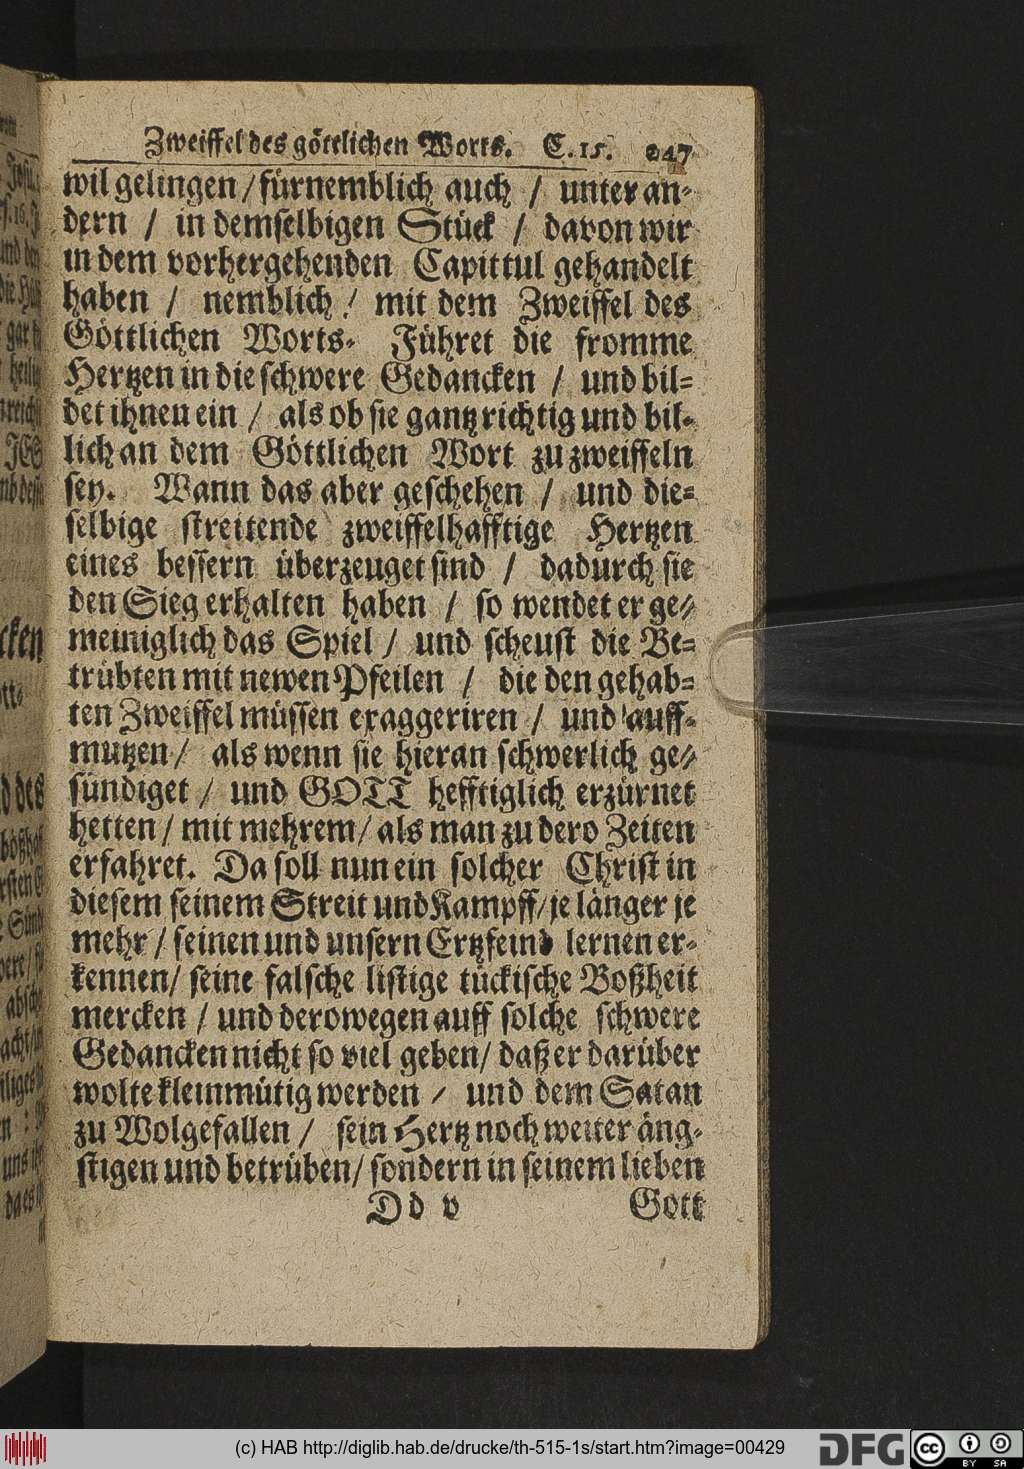 Zweiffel des göttlichen Worts. C. 15. 247
wil gelingen / fürnemblich auch / unter an-
dern / in demselbigen Stück / davon wir
in dem vorhergehenden Capittul gehandelt
haben / nemblich / mit dem Zweiffel des
Göttlichen Worts. Führet die fromme
Hertzen in die schwere Gedancken / und bil-
det ihnen ein / als ob sie gantz richtig und bil-
lich an dem Göttlichen Wort zu zweiffeln
sey. Wann das aber geschehen / und die-
selbige streitende zweiffelhafftige Hertzen
eines bessern überzeuget sind / dadurch sie
den Sieg erhalten haben / so wendet er ge-
meiniglich das Spiel / und scheust die Be-
trübten mit newen Pfeilen / die den gehab-
ten Zweiffel müssen exaggeriren / und auff-
mutzen / als wenn sie hieran schwerlich ge-
sündiget / und GOTT hefftiglich erzürnet
hetten / mit mehrem / als man zu dero Zeiten
erfahret. Da soll nun ein solcher Christ in
diesem seinem Streit und Kampff / je länger je
mehr / seinen und unsern Ertzfeind lernen er-
kennen / seine falsche listige tückische Boßheit
mercken / und derowegen auff solche schwere
Gedancken nicht so viel geben / daß er darüber
wolte kleinmütig werden / und dem Satan
zu Wolgefallen / sein Hertz noch weiter äng-
stigen und betrüben / sondern in seinem lieben
Dd v Gott
(c) HAB http://diglib.hab.de/drucke/th-515-1s/start.htm?image=00429
DFG cc BY SA